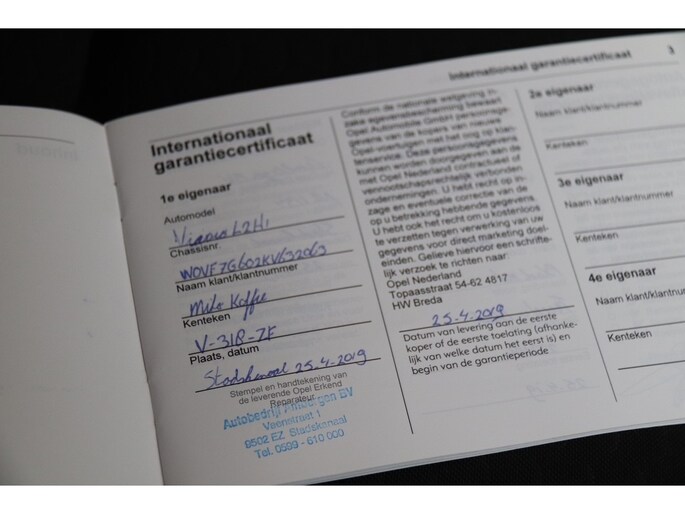 Internationaal garantiecertificaat 3
Internationaal
garantiecertificaat
1e eigenaar
Automodel
Vivaro L2H1
Chassisnr.
W0VF7G602KV632063
Naam klant/klantnummer
Kenteken
V-318-ZF
Plaats, datum
Stadskanaal 25.4.2019
Stempel en handtekening van
de leverende Opel Erkend
Reparateur
Autobedrijf BV
Veenstraat 1
9502 EZ Stadskanaal
Tel. 0599 - 610 000
Conform de nationale wetgeving in-
zake egevensbescherming bewaart
Opel Automobile GmbH persoonsge-
gevens van de kopers van nieuwe
Opel-voertuigen met het oog op klan-
tenservice. Deze persoonsgegevens
kunnen worden doorgegeven aan de
met Opel Nederland contractueel of
vennootschapsrechtelijk verbonden
ondernemingen. U hebt recht op in-
zage en eventuele correctie van de
op u betrekking hebbende gegevens.
U hebt ook het recht om u kosteloos
te verzetten tegen verwerking van uw
gegevens voor direct marketing doel-
einden. Gelieve hiervoor een schrifte-
lijk verzoek te richten naar:
Opel Nederland
Topaasstraat 54-62 4817
HW Breda
25.4.2019
Datum van levering aan de eerste
koper of de eerste toelating (afhanke-
lijk van welke datum het eerst is) en
begin van de garantieperiode
2e eigenaar
Naam klant/klantnummer
Kenteken
3e eigenaar
Naam klant/klantnummer
Kenteken
4e eigenaar
Naam klant/klantnummer
Kenteken